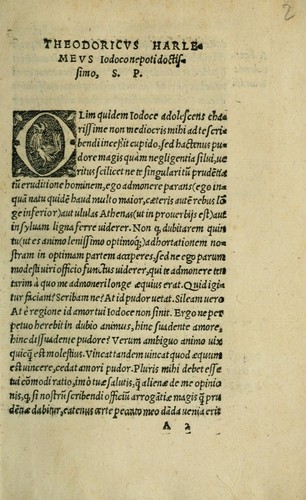 2
THEODORICVS HARLE-
MEVS Iodoco nepoti doctis-
simo, S. P.
OLim quidem Iodoce adolescens cha-
rissime non mediocris mihi ad te scri-
bendi incessit cupido, sed hactenus pu-
dore magis quàm negligentia silui, ve-
ritus scilicet ne te singularitũ prudẽtia
tũ eruditione hominem, ego admonere parans (ego in-
quã natu quidẽ haud multo maior, cæteris autẽ rebus lõ
ge inferior) aut ululas Athenas (ut in prouerbijs est) aut
in syluam ligna ferre uiderer. Non q, dubitarem quin
tu (ut es animo lenissimo optimoq;) adhortationem no-
stram in optimam partem acciperes, sed ne ego parum
modesti uiri officio functus uiderer, qui te admonere ten
tarim à quo me admoneri longe æquius erat. Quid igi
tur faciam? Scribam ne? At id pudor uetat. Sileam uero
At è regione id amor tui Iodoce non sinit. Ergo ne per
petuo herebit in dubio animus, hinc suadente amore,
hinc dissuadente pudore? Verum ambiguo animo uix
quicq̃ est molestius. Vincat tandem uincat quod æquum
est uincere, cedat amori pudor. Pluris mihi debet esse
tui cõmodi ratio, imò tuæ salutis, q̃ alienæ de me opinio
nis, q, si nostrũ scribendi officiũ arrogãtiæ magis q̃ pru
dẽtiæ dabitur, eatenus certe peccato meo dãda uenia erit
A 2